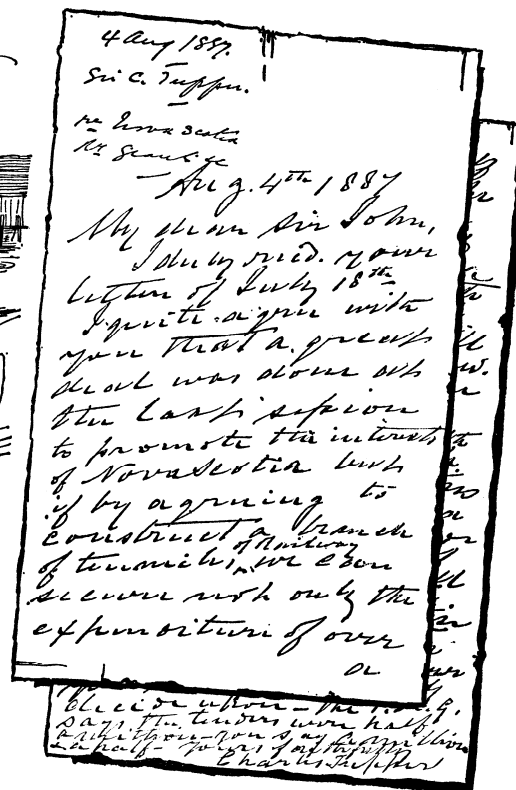 4 Aug 1887.
Sir C. Tupper.
re Nova Scotia
Aug. 4th 1887
My dear Sir John,
I duly recd. your
letter of July 18th
I quite agree with
you that a great
deal was done at
the last session
to promote the interests
of Nova Scotia but
if by agreeing to
construct a branch
of ten miles, of Railway we can
secure not only the
expenditure of over
a
decide upon - the
says the tenders were half
a million - you say a million
& a half - Yours faithfully
Charles Tupper